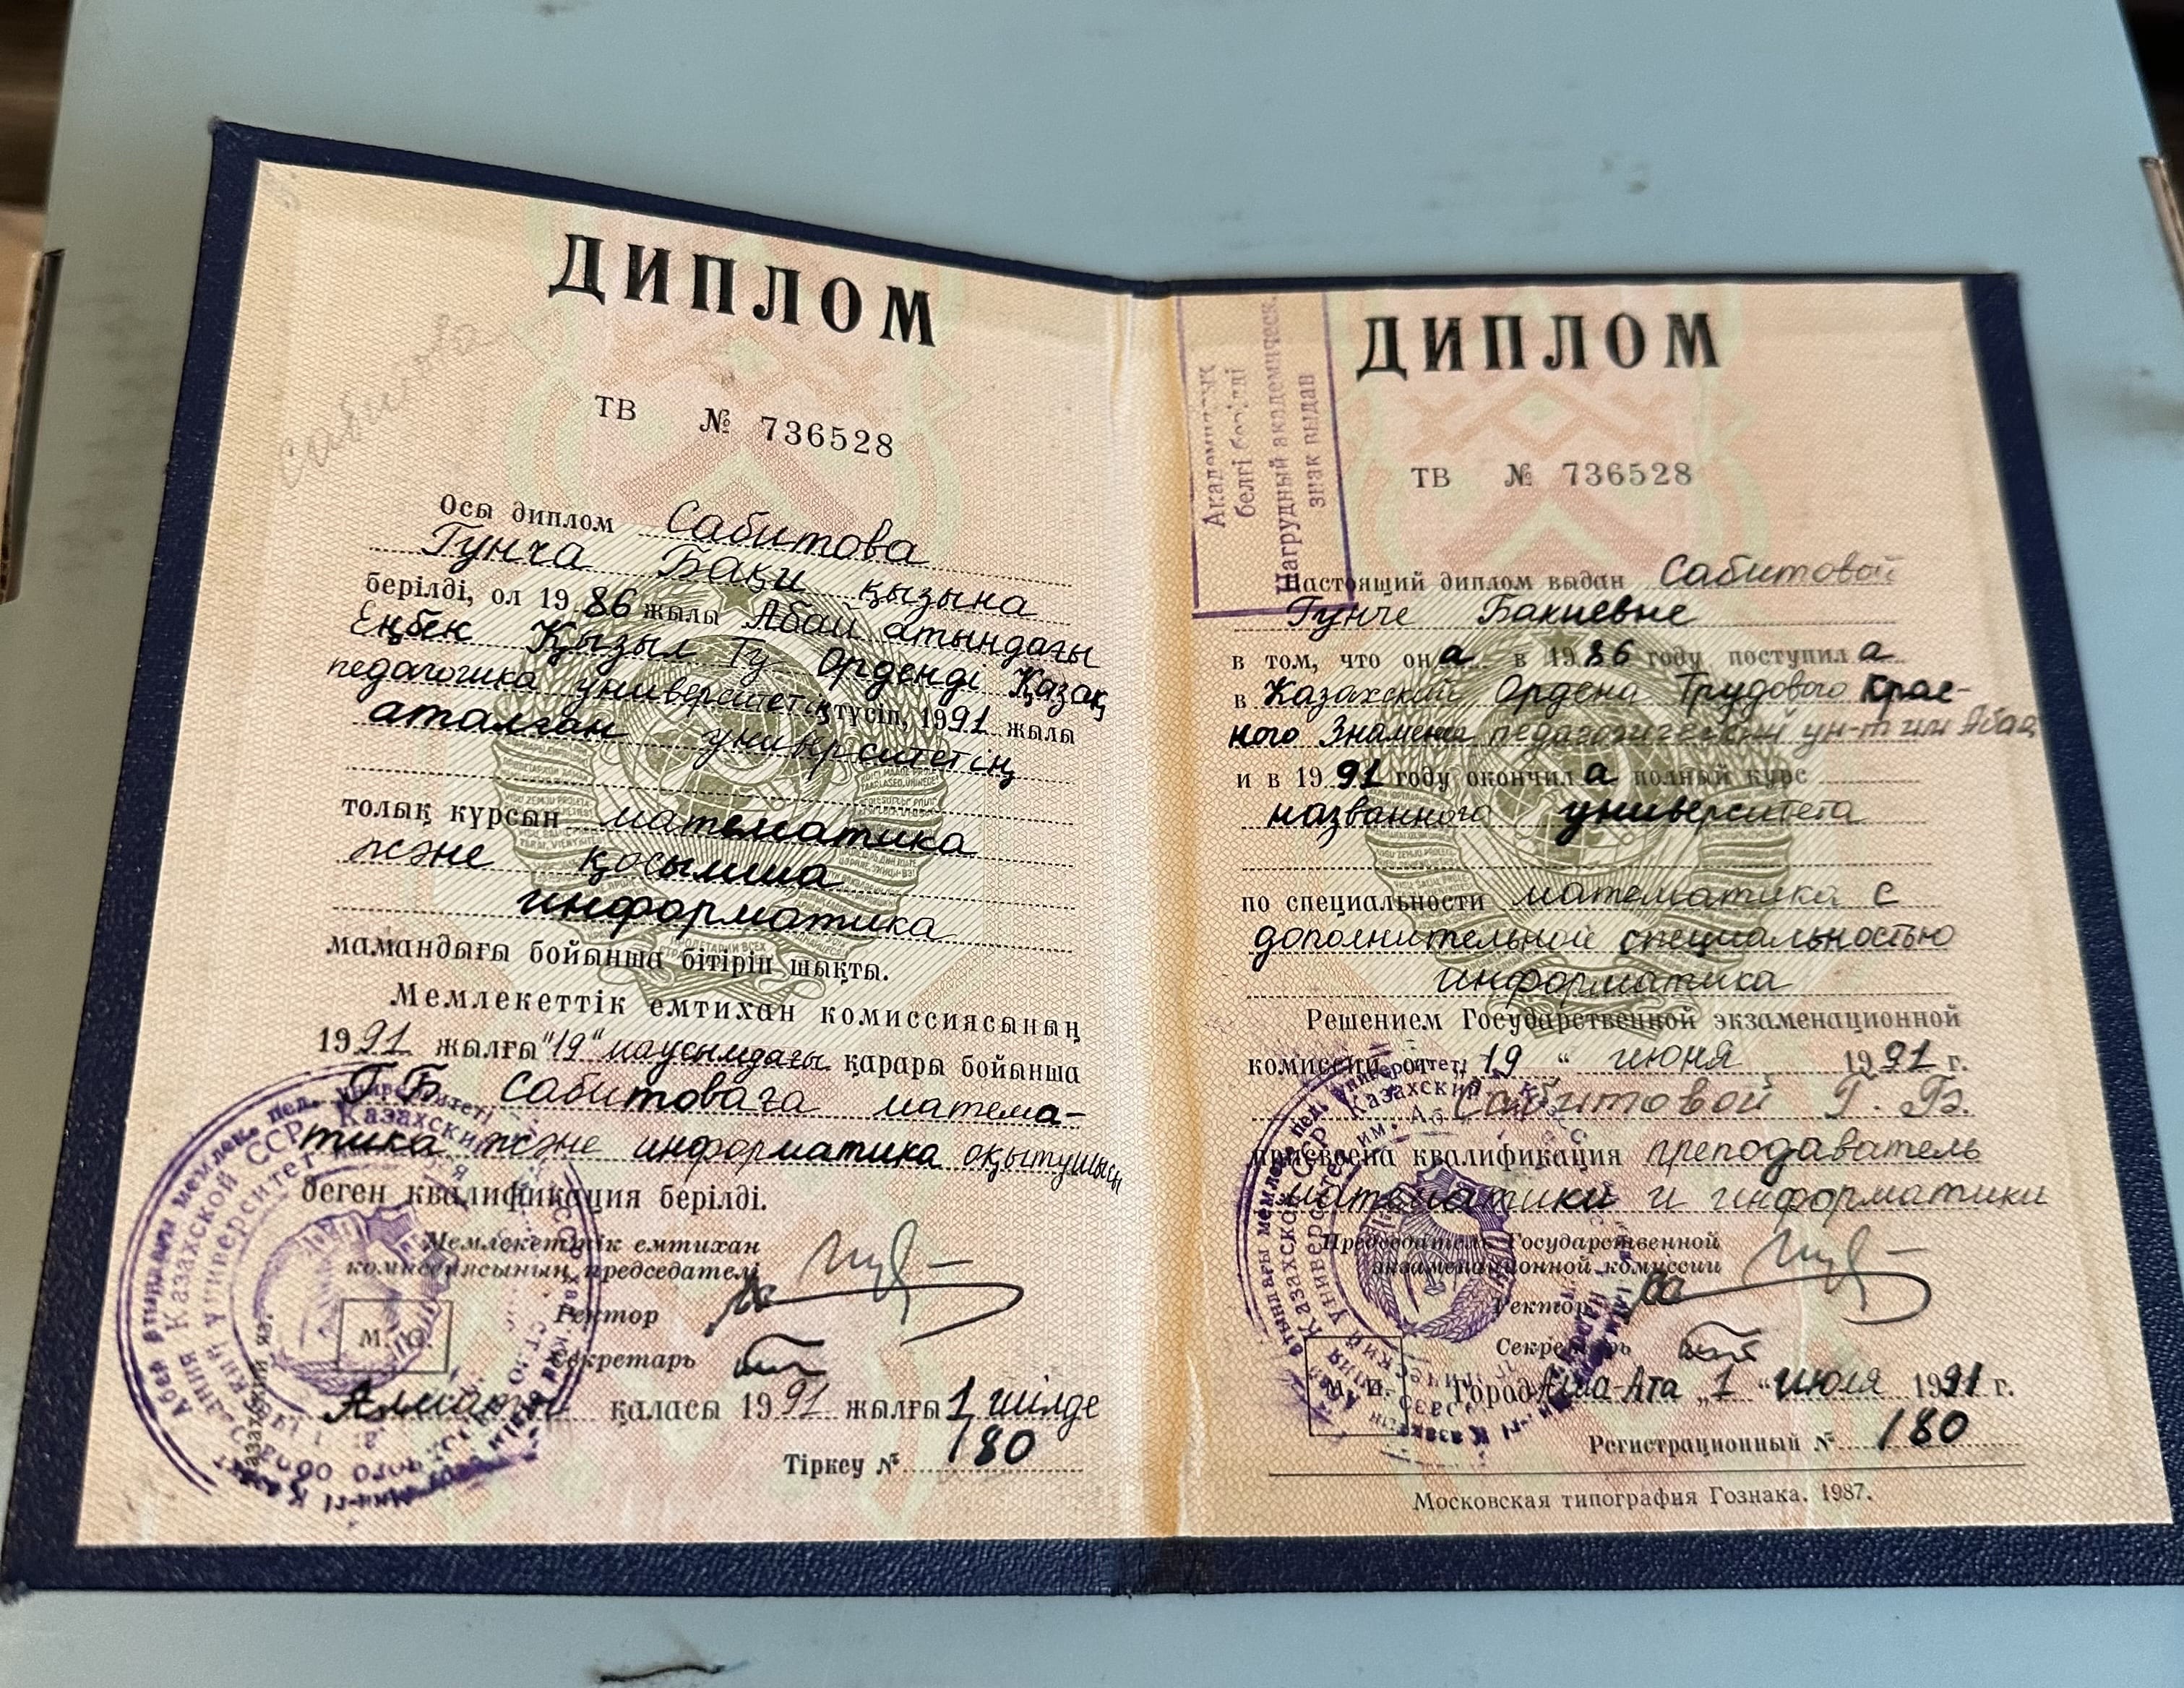 ДИПЛОМ
ТВ № 736528
Сабитова
Осы диплом Сабитова
Гунча Бақи қызына
берілді, ол 1986 жылы Абай атындағы
Еңбек Қызыл Ту Орденді Қазақ
педагогика университетіне түсіп, 1991 жылы
аталған университетің
толық курсын математика
және қосымша
информатика
мамандығы бойынша бітіріп шықты.
Мемлекеттік емтихан комиссиясының
1991 жылғы "19" маусымдағы қарары бойынша
Г.Б. Сабитоваға матема-
тика және информатика оқытушысы
деген квалификация берілді.
Мемлекеттік емтихан
комиссиясының председателі
Ректор
М. О.
Секретарь
Алматы қаласы 1991 жылғы 1 шілде
Тіркеу № 180
ДИПЛОМ
Академиялық
белгі берілді
Нагрудный академическ.
знак выдан
ТВ № 736528
Настоящий диплом выдан Сабитовой
Гунче Бакиевне
в том, что она в 1986 году поступила
в Казахский Ордена Трудового Крас-
ного Знамени педагогический ун-т им Абая
и в 1991 году окончила полный курс
названного университета
по специальности математика с
дополнительной специальностью
информатика
Решением Государственной экзаменационной
комиссии от „19“ июня 1991 г.
Сабитовой Г. Б.
присвоена квалификация преподаватель
математики и информатики
Председатель Государственной
экзаменационной комиссии
Ректор
Секретарь
М. П.
Город Алма-Ата „1“ июля 1991 г.
Регистрационный № 180
Московская типография Гознака. 1987.